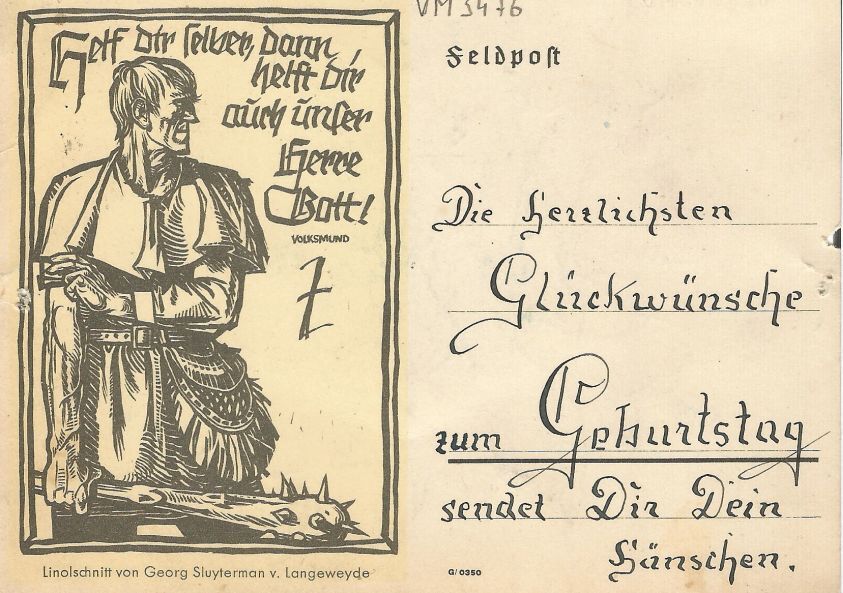 Helf dir selber, dann
helft dir
auch unser
Herre
Gott!
VOLKSMUND
Linolschnitt von Georg Sluyterman v. Langeweyde
VM 3476
Feldpost
Die herzlichsten
Glückwünsche
zum Geburtstag
sendet Dir Dein
Hänschen.
G/0350